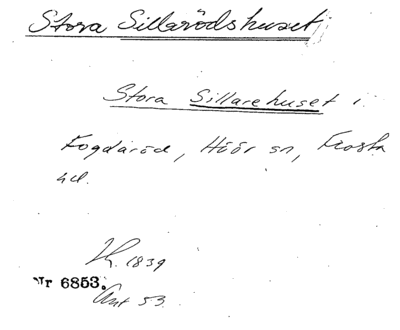 Stora Sillarödshuset
Stora Sillarehuset i
Fogdaröd, Höör sn, Frosta
hd.
K. 1839
Nr 6853.
Ant 53